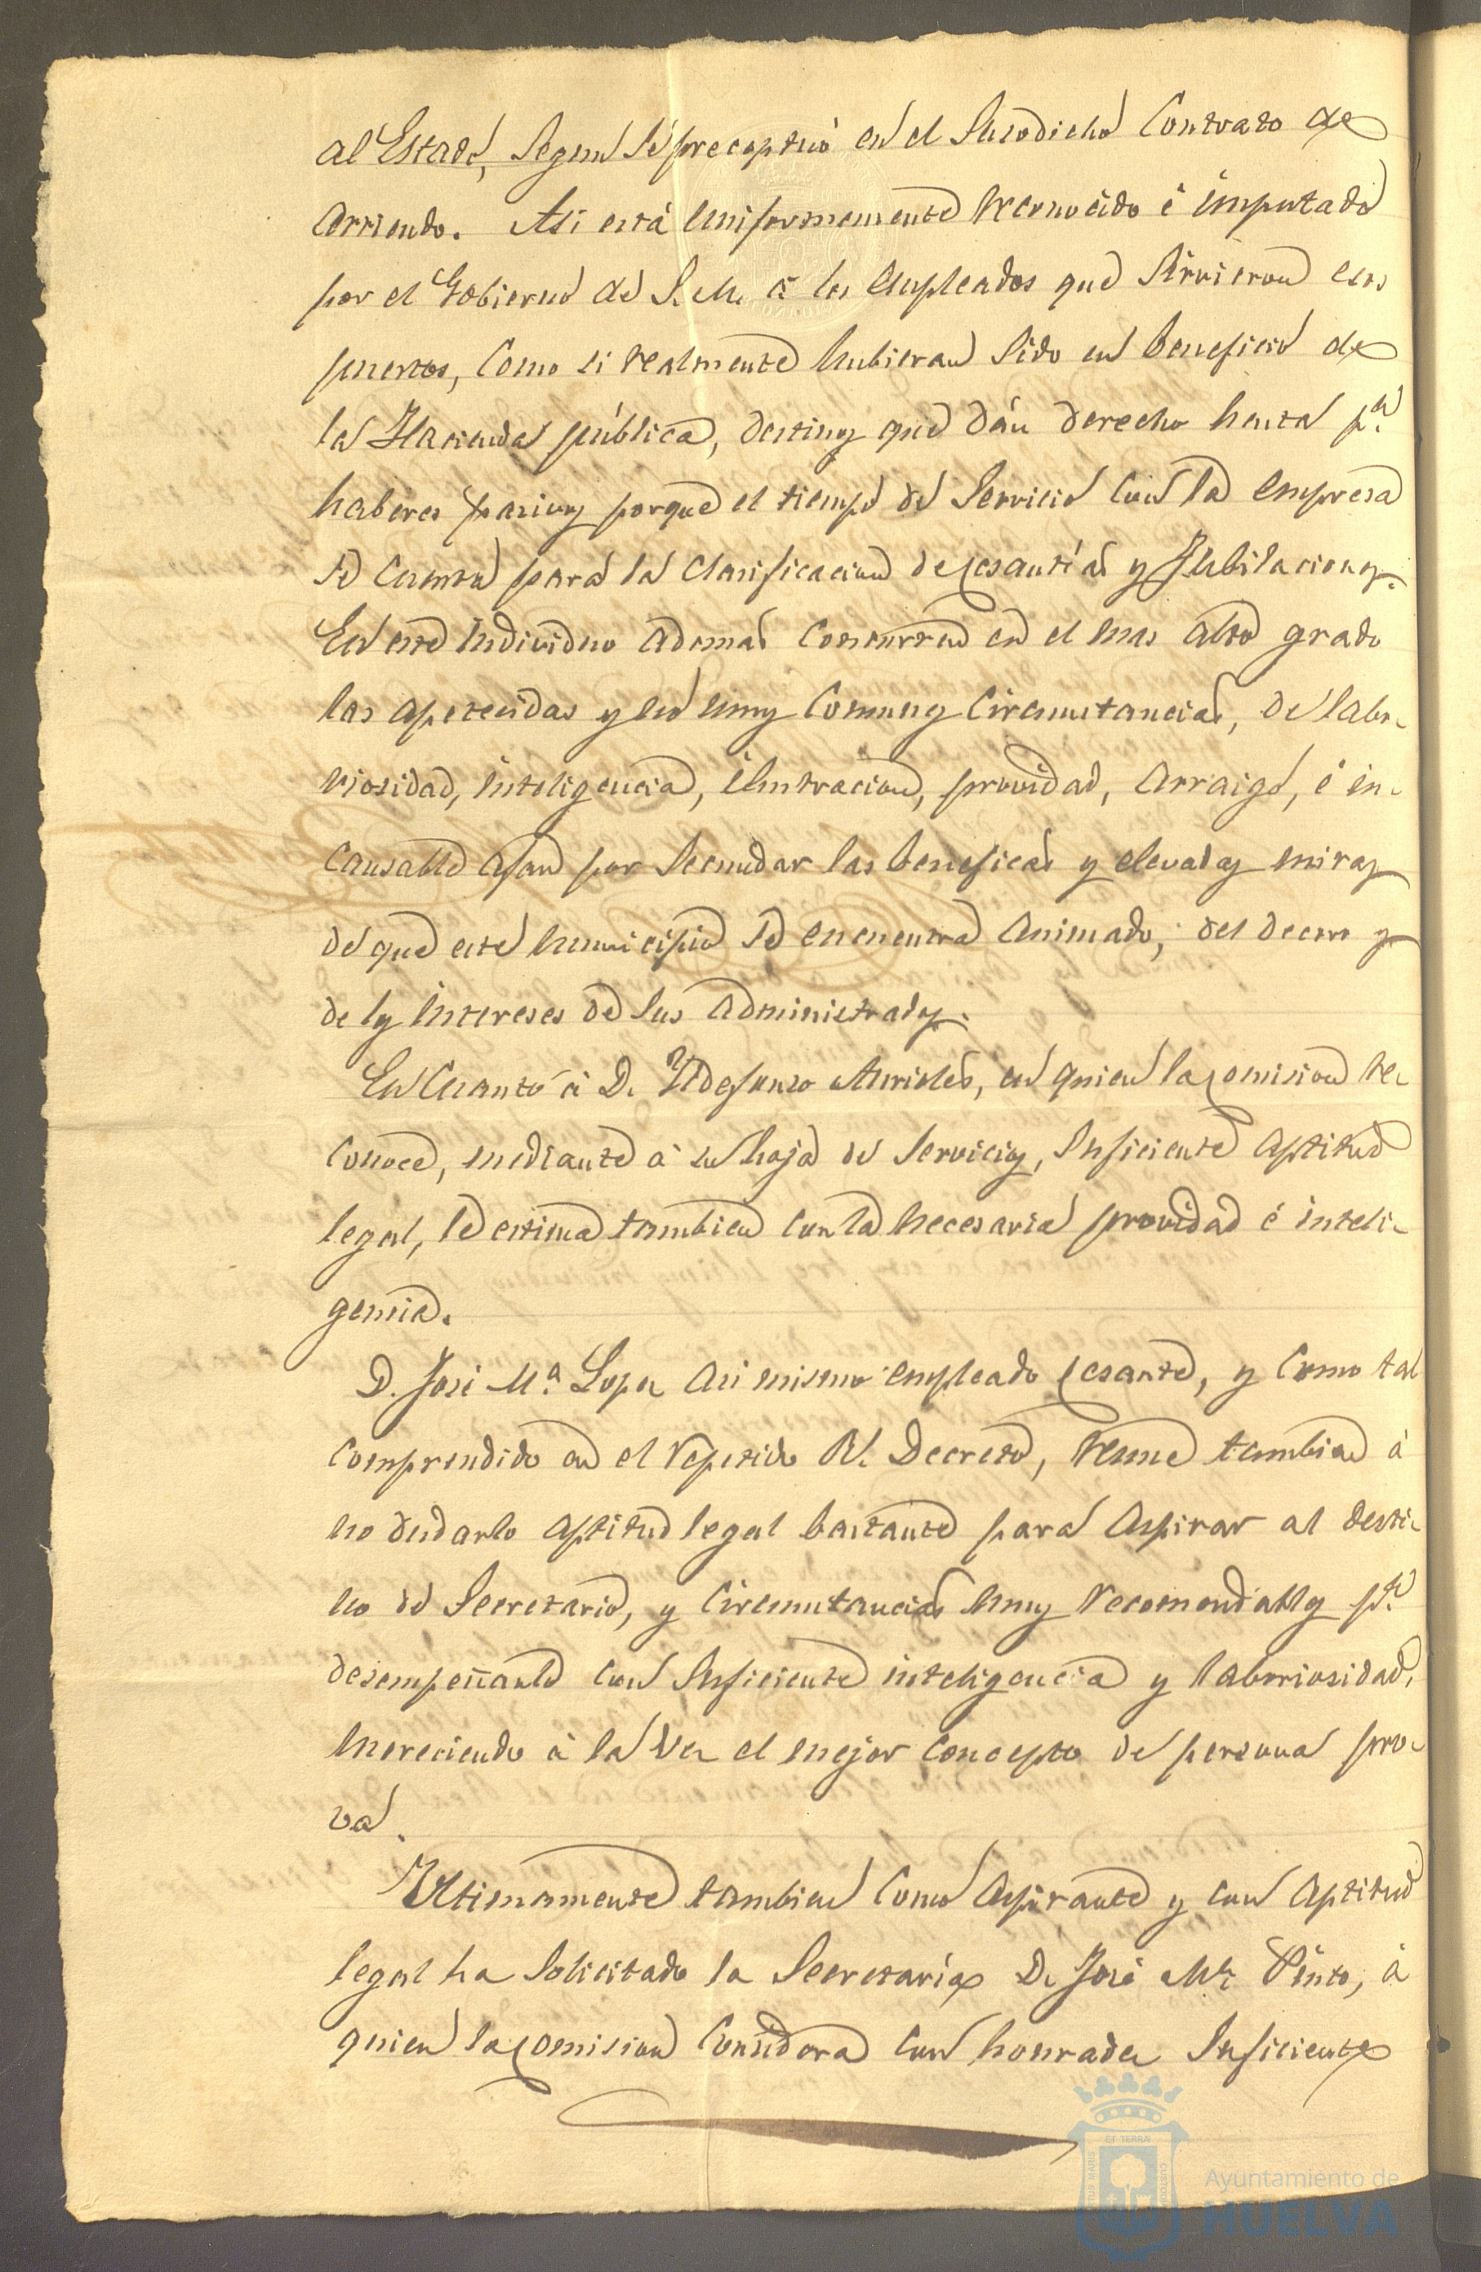 al Estado, segun se preceptuó en el susodicho Contrato de
arriendo. Asi está uniformemente reconocido é imputado
por el Gobierno de S. M. á los empleados que sirvieron esos
puestos, como si realmente hubieran sido en beneficio de
la Hacienda pública, destinos que dán derecho hasta p.ª
haberes pasivos porque el tiempo de servicio con la empresa
se cuenta para la clasificacion de cesantías y jubilaciones.
En este individuo ademas concurren en el mas alto grado
las apetecidas y no muy comunes circunstancias, de labo-
riosidad, inteligencia, ilustracion, providad, arraigo, é in-
cansable afan por secundar las beneficas y elevadas miras
de que este municipio se encuentra animado, del decoro y
de los intereses de sus administrados.
En cuanto á D. Ildefonso Aurioles, en quien la comision re-
conoce, mediante á su hoja de servicios, suficiente aptitud
legal, le estima tambien con la necesaria providad é inteli-
gencia.
D. José M.ª Lopez asi mismo empleado cesante, y como tal
comprendido en el repetido Rl. Decreto, reune tambien á
no dudarlo aptitud legal bastante para aspirar al desti-
no de Secretario, y circunstancias muy recomendables p.ª
desempeñarlo con suficiente inteligencia y laboriosidad,
mereciendo á la vez el mejor concepto de persona pro-
va.
Ultimamente tambien como aspirante y con aptitud
legal ha solicitado la Secretaría D. José M.ª Pinto, á
quien la comision considera con honradez suficiente
Ayuntamiento de
HUELVA